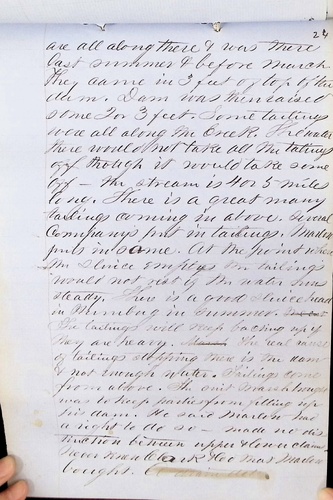 24
are all along there & was there
last summer & before march
they came in 3 feet of top of the
dam. Dam was then raised
some 2 or 3 feet. Some tailings
were all along the Creek. The water
there would not take all the tailings
off though it would take some
off — the stream is 4 or 5 miles
long. There is a great many
tailings coming in above. Several
Companys put in tailings. Marlow
puts in some. At the point where
the Sluice Emptys the tailings
would not rest if the water runs
steady. There is a good Sluice head
in running in Summer.
The tailings will keep backing up if
they are heavy. The real cause
of tailings stopping there is the dam
& not enough water. Tailings come
from above. The suit Marsh brought
was to keep parties from filling up
his dam. He said Marlow had
a right to do so — made no dis
tinction between upper & lower claim
never knew Clark & Co that Marlow
bought.